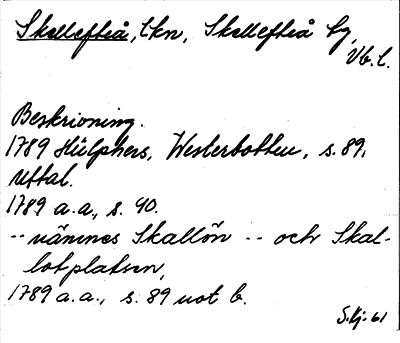 Skellefteå, lkn, Skellefteå by,
Vb. l.
Beskrivning.
1789 Hülphers, Westerbotten, s. 89.
Uttal.
1789 a.a., s. 90.
-- nämnes Skallön -- och Skal-
lotplatsen,
1789 a.a., s. 89 not b.
S. Kj. 61